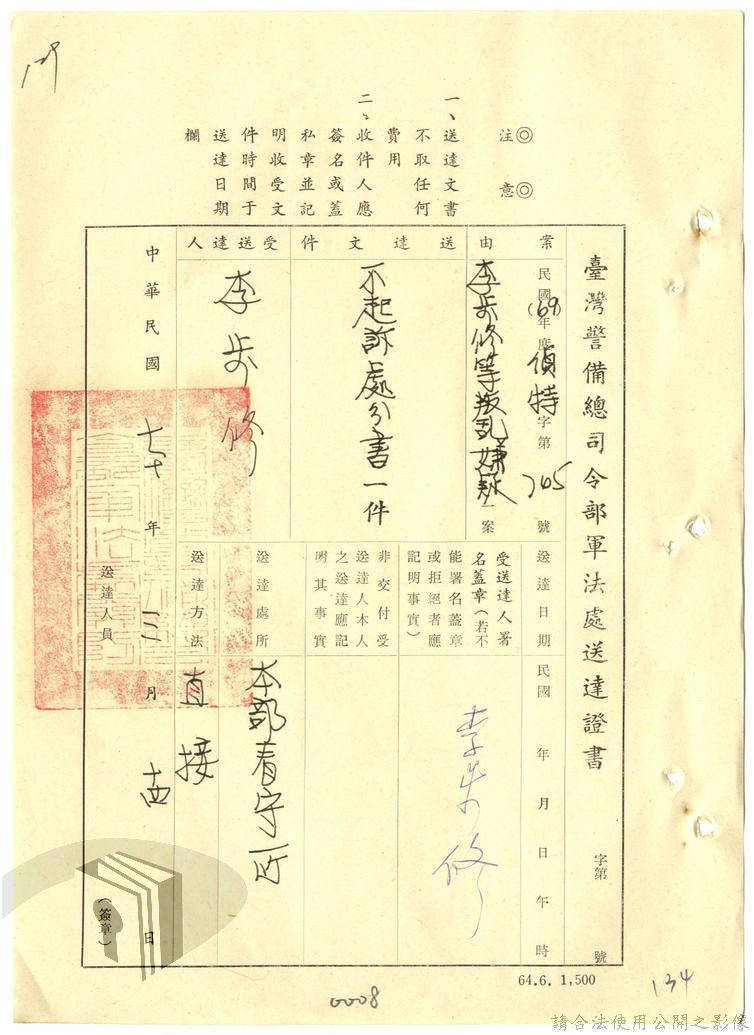 注意
◎◎
一、送達文書
不取任何
費用
二、收件人應
簽名或蓋
私章並記
明收受文
件時間于
送達日期
欄
臺灣警備總司令部軍法處送達證書
字第 號
案由
民國(69)年度偵特字第745號
李步修等叛乱嫌疑一案
送達文件
不起訴處分書一件
受送達人
李步修
送達日期
民國 年 月 日 午 時
受送達人署
名蓋章(若不
能署名蓋章
或拒絕者應
記明事實)
李步修
非交付受
送達人本人
之送達應記
明其事實
送達處所
本部看守所
送達方法
直接
中華民國七十年三月十四日
送達人員
(簽章)
64.6. 1,500
134
0008
請合法使用公開之影像